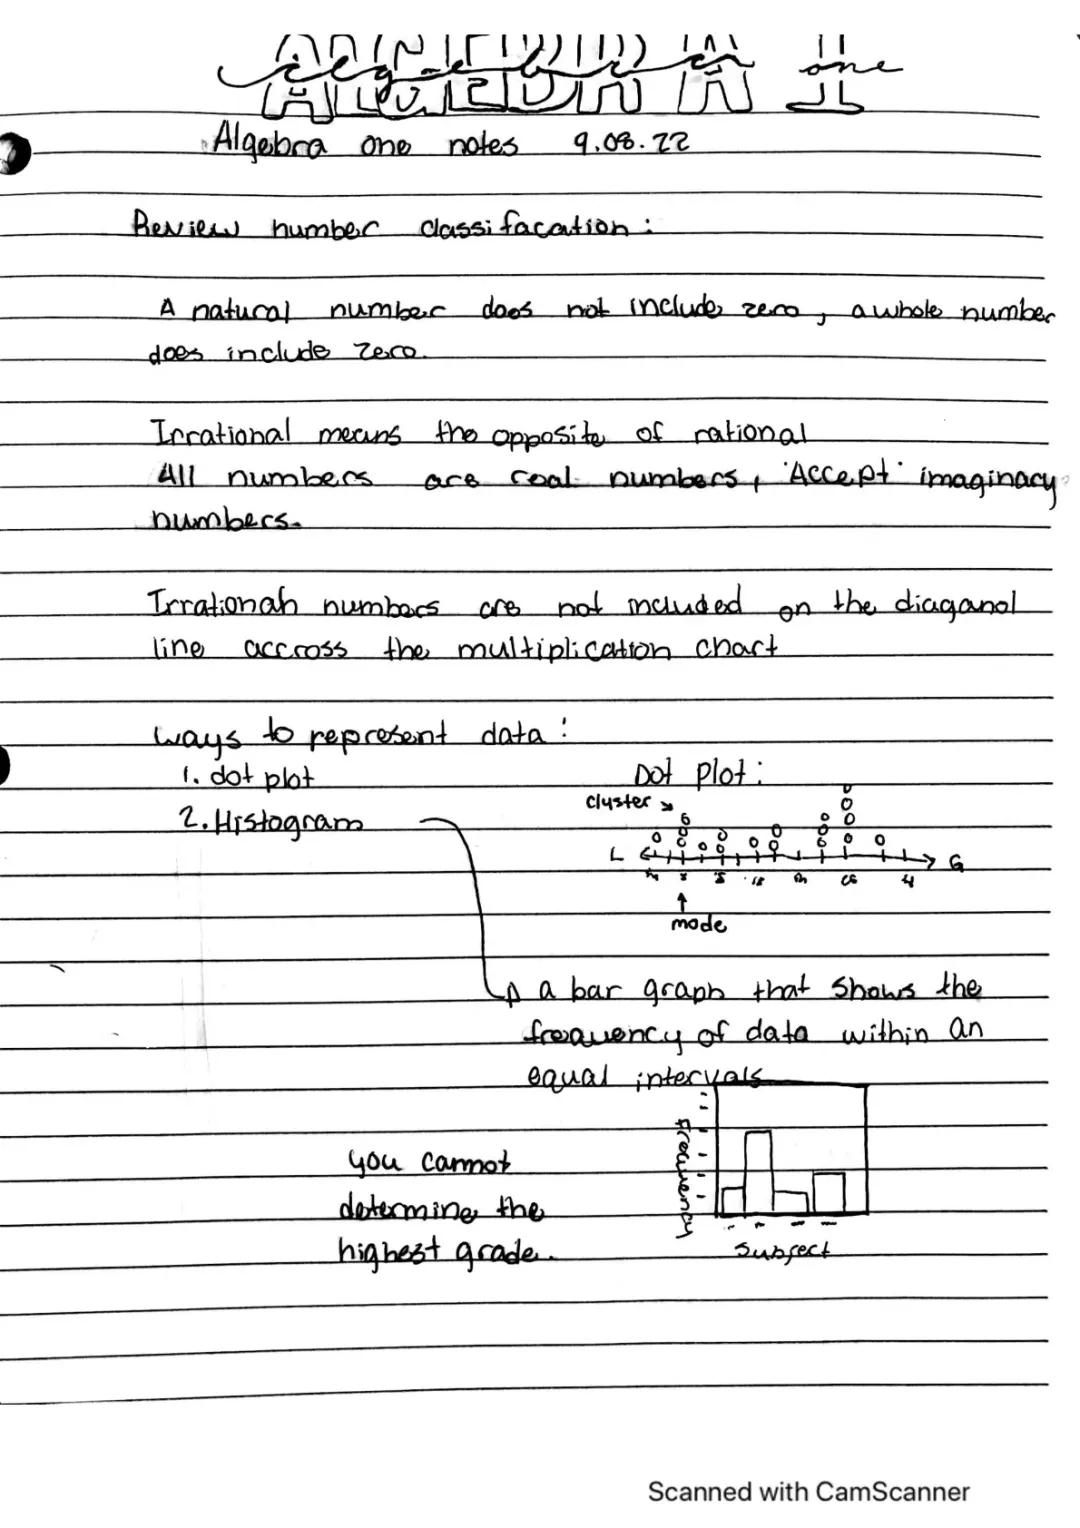 ALGEBRA 1
algebra one
Algebra one notes 9.08.22
Review number classifacation:
A natural number does not include zero, a whole number
does include zero.
Irrational means the opposite of rational
All numbers are real numbers, "Accept" imaginary
numbers.
Irrational numbers are not included on the diaganol
line accross the multiplication chart
ways to represent data:
1. dot plot
2. Histogram
Dot plot:
cluster
L G
mode
a bar graph that shows the
frequency of data within an
equal intervals
you cannot
determine the
highest grade.
Frequency
Subject
Scanned with CamScanner